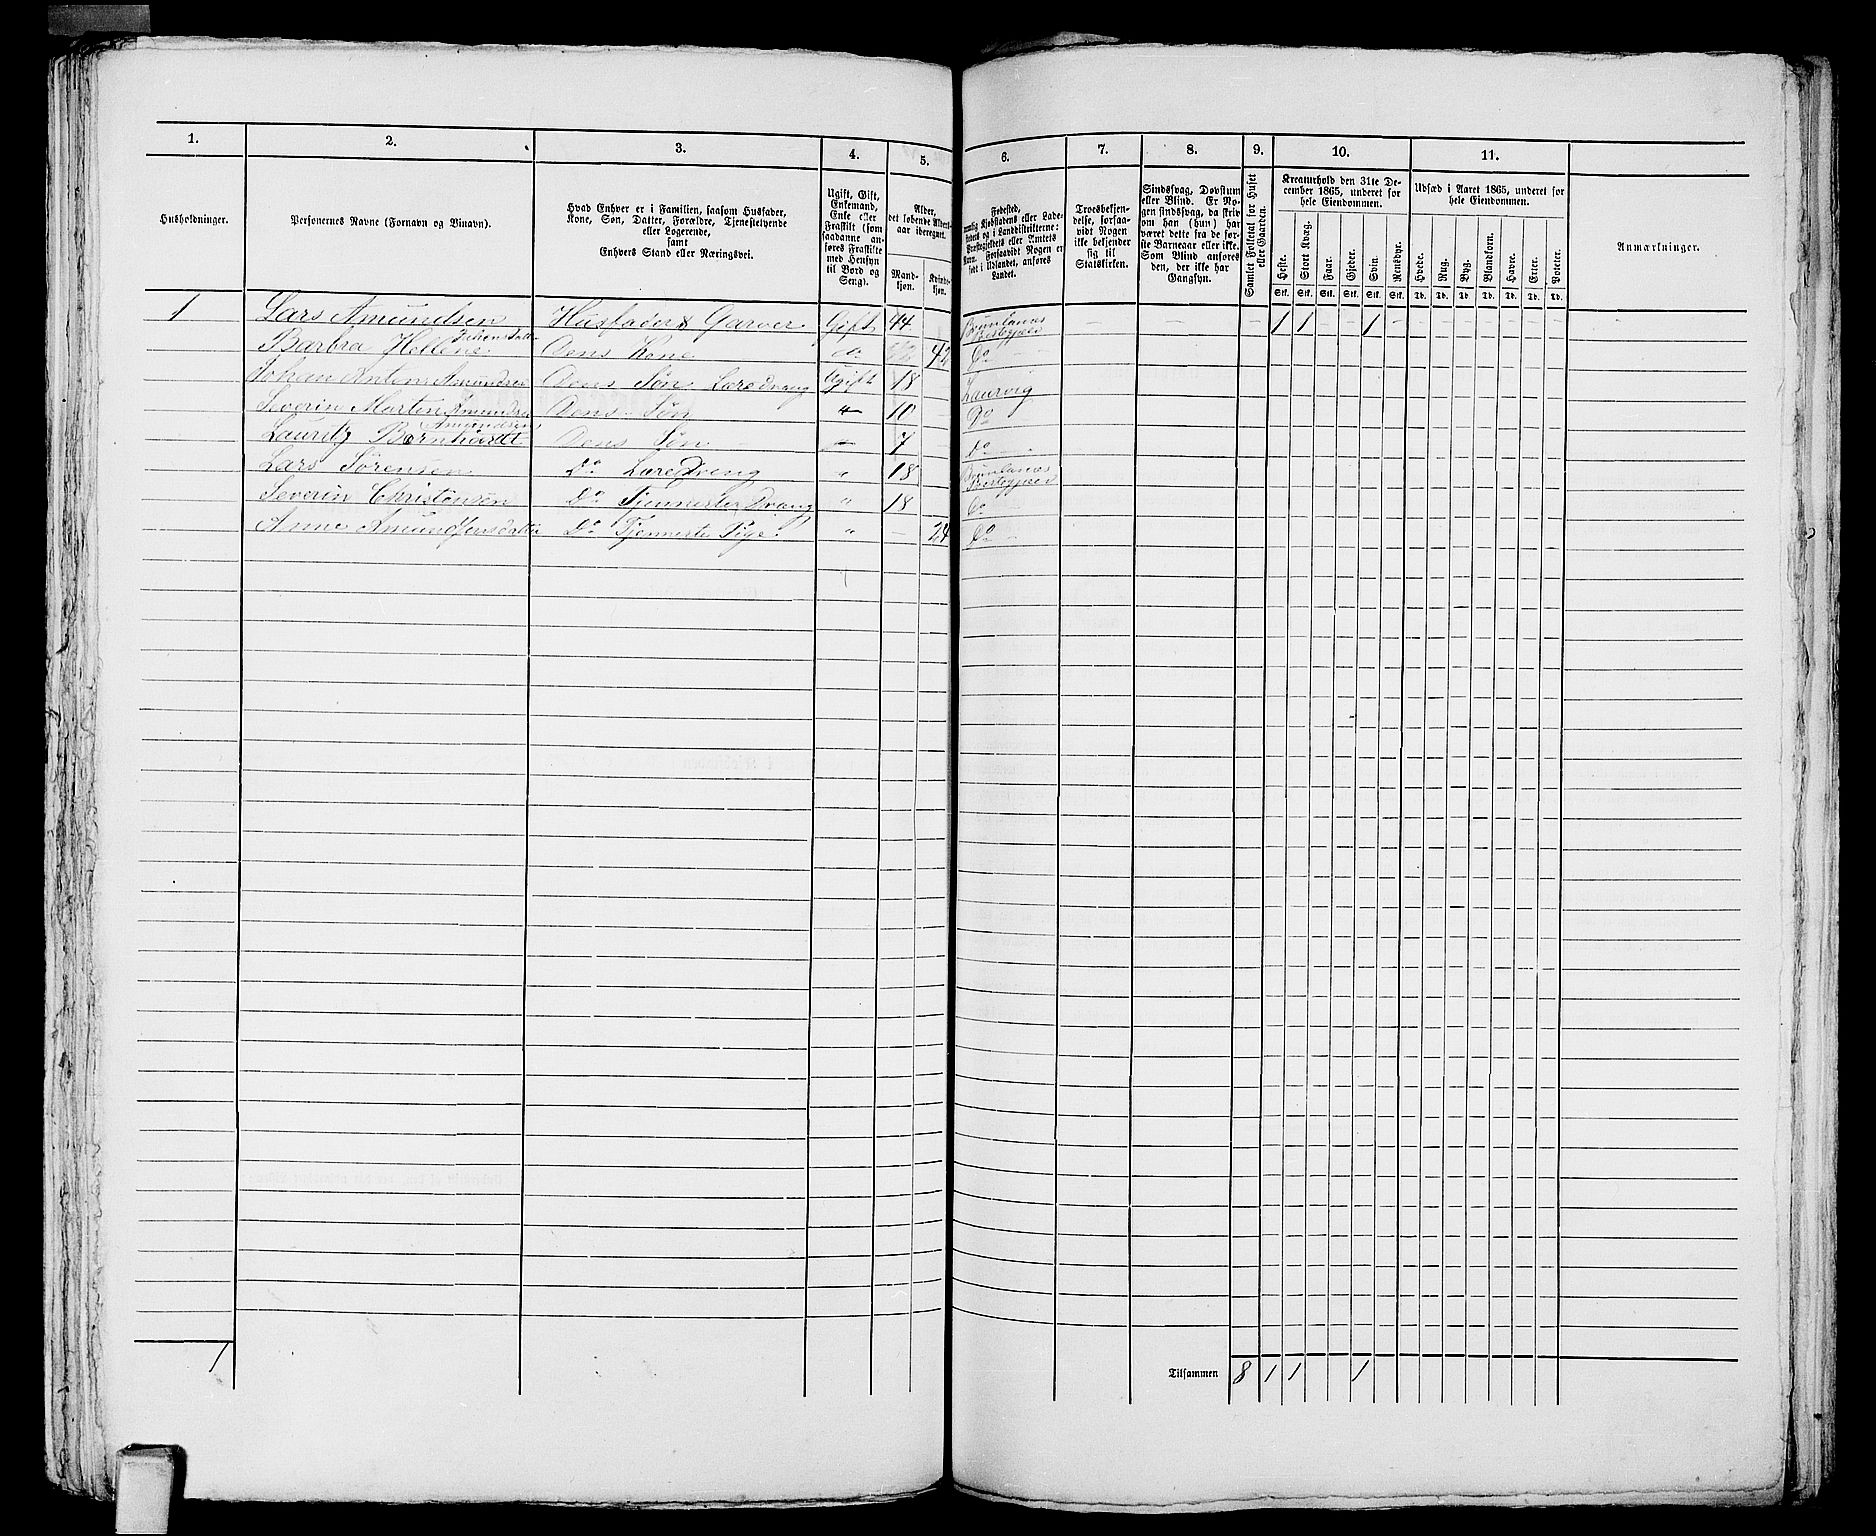 1. 2. 3. 4. 5. 6. 7. 8. 9. 10. 11.
Husholdninger.
Personernes Navne (Fornavn og Tilnavn).
Hvad Enhver er i Familien, saasom Husfader,
Kone, Søn, Datter, Forældre, Tjenestetyende
eller Logerende,
samt
Enhvers Stand eller Næringsvei.
Ugift, Gift,
Enkemand,
Enke eller
Fraskilt (som
saadanne an-
føres Fraskilte
med Hensyn
til Bord og
Seng).
Alder,
det løbende Alders-
aar iberegnet.
Mand-
kjøn.
Kvinde-
kjøn.
Fødested,
nemlig Kjøbstadens eller Lade-
stedets og i Landdistrikterne:
Præstegjeldets eller Amtets
Navn. Forsaavidt Nogen er
født i Udlandet, anføres
Landet.
Troesbekjen-
delse, forsaa-
vidt Nogen
ikke bekjender
sig til
Statskirken.
Sindssvag, Døvstum
eller Blind. Er No-
gen sindssvag, da skriv
om han (hun) har
været dette fra de før-
ste Barneaar eller ikke.
Som Blind anføres
den, der ikke har
Gangsyn.
Samlet Folketal for Huset
eller Gaarden.
Kreaturhold den 31te De-
cember 1865, underet for
hele Eiendommen.
Heste. Stort Kvæg. Faar. Gjeder. Svin. Rensdyr.
Stk. Stk. Stk. Stk. Stk. Stk.
Udsæd i Aaret 1865, underet for
hele Eiendommen.
Hvede. Rug. Byg. Blandkorn. Havre. Erter. Poteter.
Td. Td. Td. Td. Td. Td. Td.
Anmærkninger.
1 Lars Amundsen Husfader & Garver Gift 44 Brunlanæs Præstegjeld — — — 1 1 — — 1 —
Barbra Hellene Dens Kone do 42 Do
Johan Anton Amundsen Dens Søn Læredrang Ugift 18 Laurvig
Severin Martin Amundsen Dens Søn " 10 Do
Amundsen
Lauritz Bernhardt Dens Søn 7 Do
Lars Sørensen Do Læredreng " 18 Brunlanæs Præstegjeld
Severin Christensen Do Tjenneste Drang " 18 Do
Anne Amundsensdatter Do Tjenneste Pige " — 24 Do
1 Tilsammen 8 1 1 1